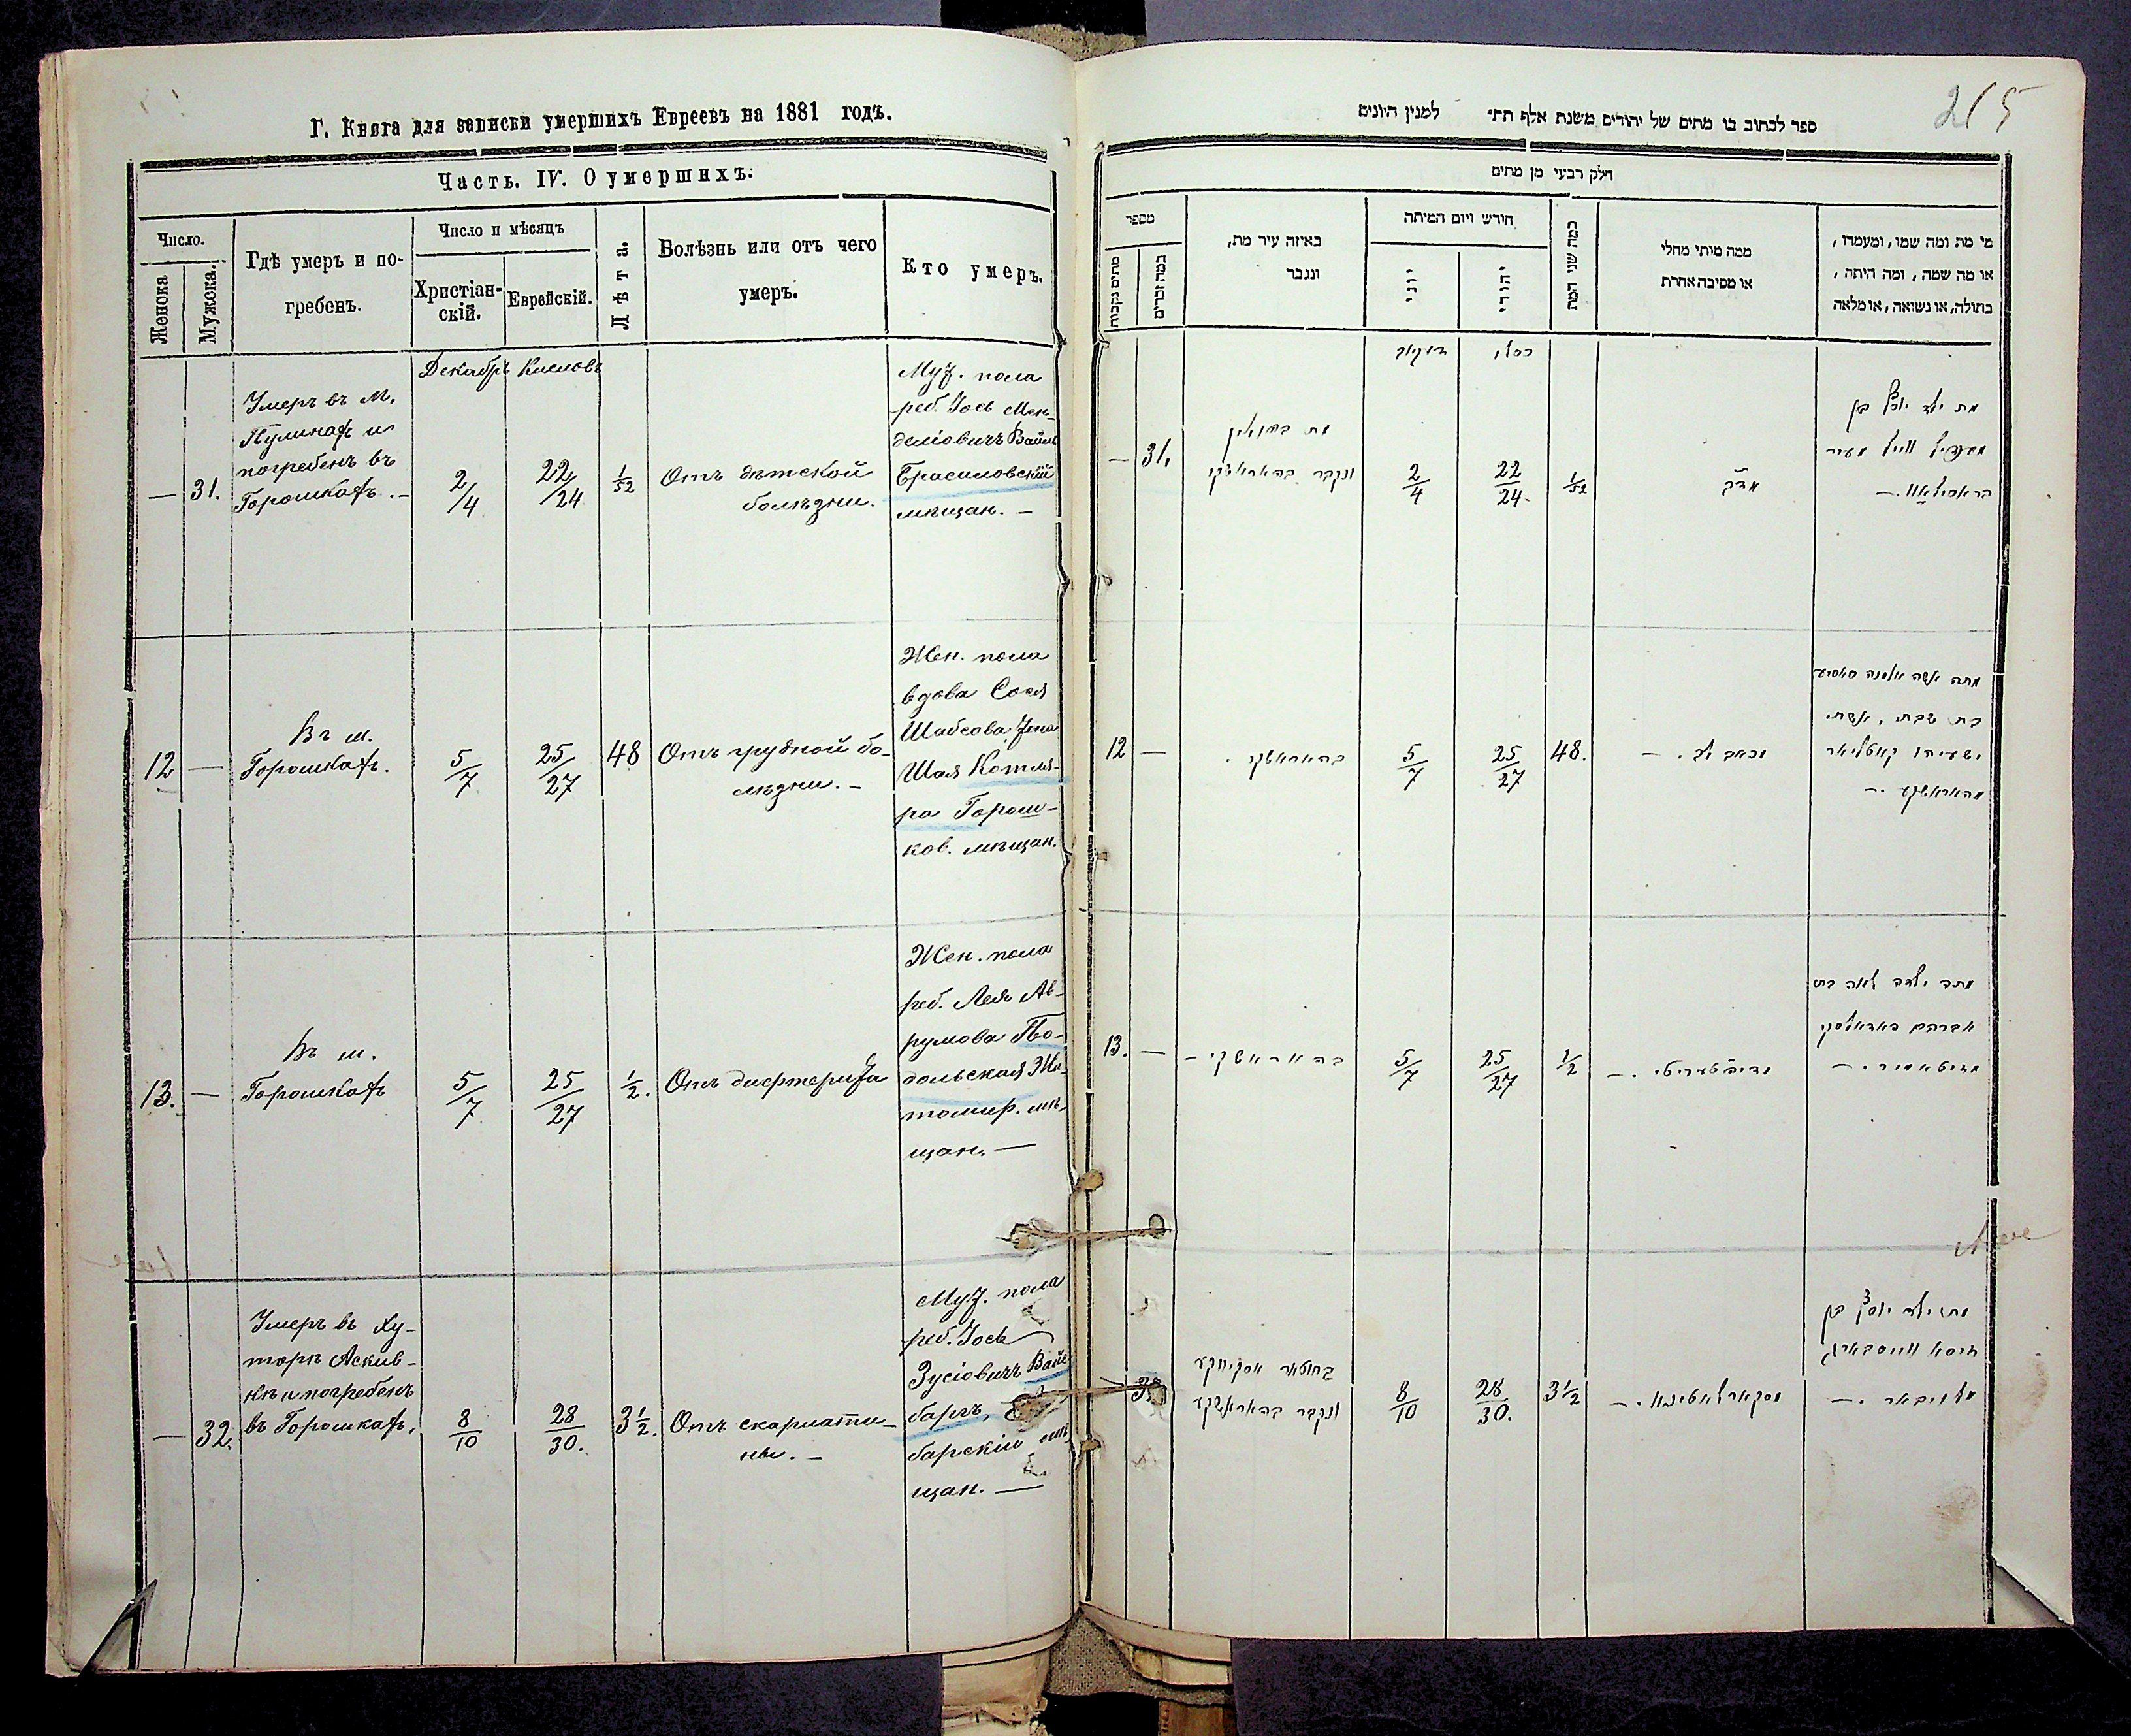 Г. Книга для записки умершихъ Евреевъ на 1881 годъ.
Часть. IV. О умершихъ.
Число.
Женска
Мужска.
Гдѣ умеръ и по-
гребенъ.
Число и мѣсяцъ
Христіан-
скій.
Еврейскій.
Лѣта.
Болѣзнь или отъ чего
умеръ.
Кто умеръ.
Декабрь Кисловъ
— 31.
Умеръ въ м.
Пулинахъ и
погребенъ въ
Горошкахъ. —
2/4
22/24
1/52
Отъ дѣтской
болѣзни.
Муж. пола
реб. Іось Мен-
деліовичъ
Брасиловскій
мѣщан. —
12 —
Въ м.
Горошкахъ.
5/7
25/27
48
Отъ грудной бо-
лѣзни. —
Жен. пола
вдова Сося
Шабсова жена
Шая Котля-
ра Горош-
ков. мѣщан.
13. —
Въ м.
Горошкахъ
5/7
25/27
1/2.
Отъ дифтерита
Жен. пола
реб. Лея Ав-
румова По-
дольская Жи-
томир. мѣ-
щан. —
— 32.
Умеръ въ Ху-
торѣ Аскив-
кѣ и погребенъ
въ Горошкахъ.
8/10
28/30.
3 1/2.
Отъ скарлати-
ны. —
Муж. пола
реб. Іось
Зусіовичъ Вайс-
баргъ,
барскій мѣ-
щан. —
215
ספר לכתוב בו מתים של יהודים משנת אלף תת״ למנין היונים
חלק רבעי מן מתים
מספר
מתים נקבות
כמה זכרים
באיזה עיר מת,
ונגבר
חודש ויום המיתה
יוני
יהודי
כמה שני המת
ממה מותי מחלי
או מסיבה אחרת
מי מת ומה שמו, ומעמדו,
או מה שמה, ומה היתה,
בתולה, או נשואה, או מלאה
כסלו
— 31.
ונקבר בהאראשקי
2/4
22/24.
1/52
מת ילד יוסף בן
בראסילאוו. —
12 —
בהאראשקי.
5/7
25/27
48.
מתה אשה אלמנה סאסיע
בת שבתי, אשת
ישעיהו קאטליאר
מהאראשקע. —
13. —
בהאראשקי —
5/7
25/27
1/2
מתה ילדה לאה בת
אברהם פאדאלסקי
זיטאמיר. —
ונקבר בהאראשקע
8/10
28/30.
3 1/2
סקארלאטינא. —
מת ילד יוסף בן
זוסא ווייסבארג